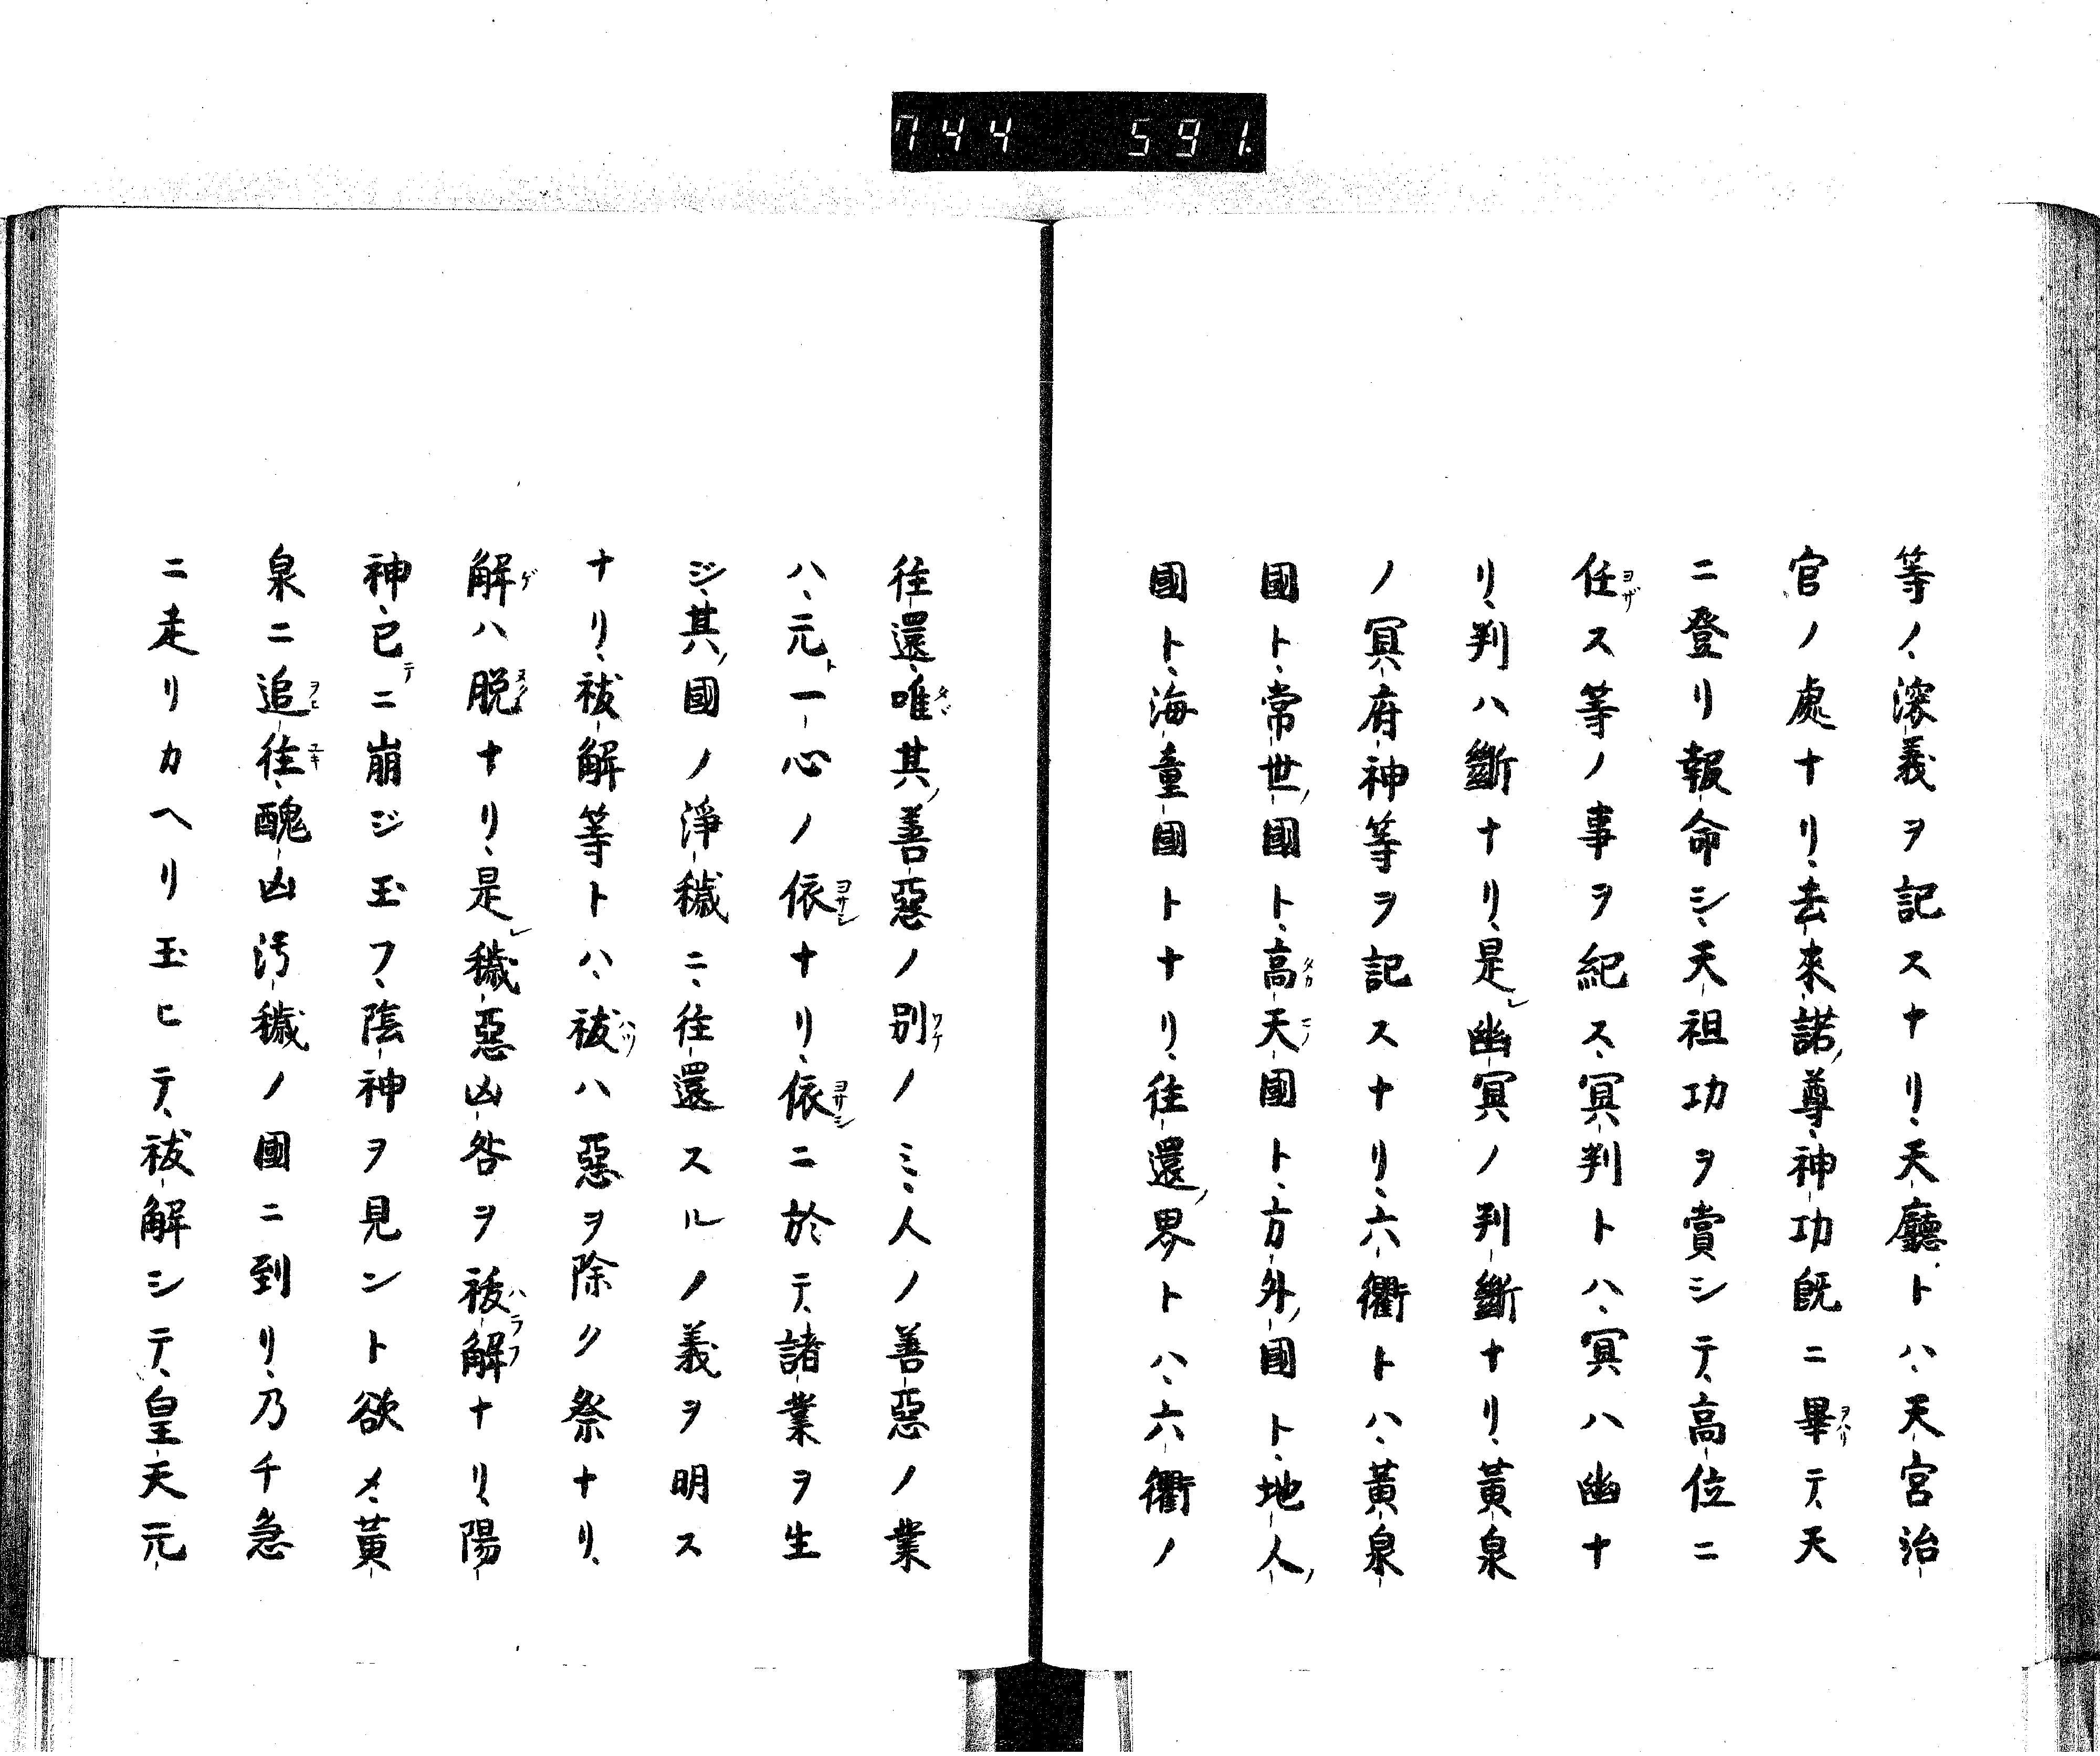 744 591.
等ノ、深義ヲ記スナリ、天廳トハ、天宮治
官ノ處ナリ、去來諾ノ尊、神功既ニ畢テ、天
ニ登リ報命シ、天祖功ヲ賞シテ、高位ニ
任ス等ノ事ヲ紀ス、冥判トハ、冥ハ幽ナ
リ、判ハ斷ナリ、是レ幽冥ノ判斷ナリ、黃泉
ノ冥府神等ヲ記スナリ、六衢トハ、黃泉
國ト、常世ノ國ト、高天國ト、方外ノ國ト、地人ノ
國ト、海童國トナリ、往還ノ界トハ、六衢ノ
往還、唯其ノ善惡ノ別ノミ、人ノ善惡ノ業
ハ、元ト一心ノ依ナリ、依ニ於テ、諸業ヲ生
ジ、其ノ國ノ淨穢ニ、往還スルノ義ヲ明ス
ナリ、祓解等トハ、祓ハ惡ヲ除ク祭ナリ、
解ハ脱ナリ、是レ穢惡凶咎ヲ祓解ナリ、陽
神、已ニ崩ジ玉フ、陰神ヲ見ント欲メ、黃
泉ニ追往、醜凶汚穢ノ國ニ到リ、乃チ急
ニ走リカヘリ玉ヒテ、祓解シテ、皇天元